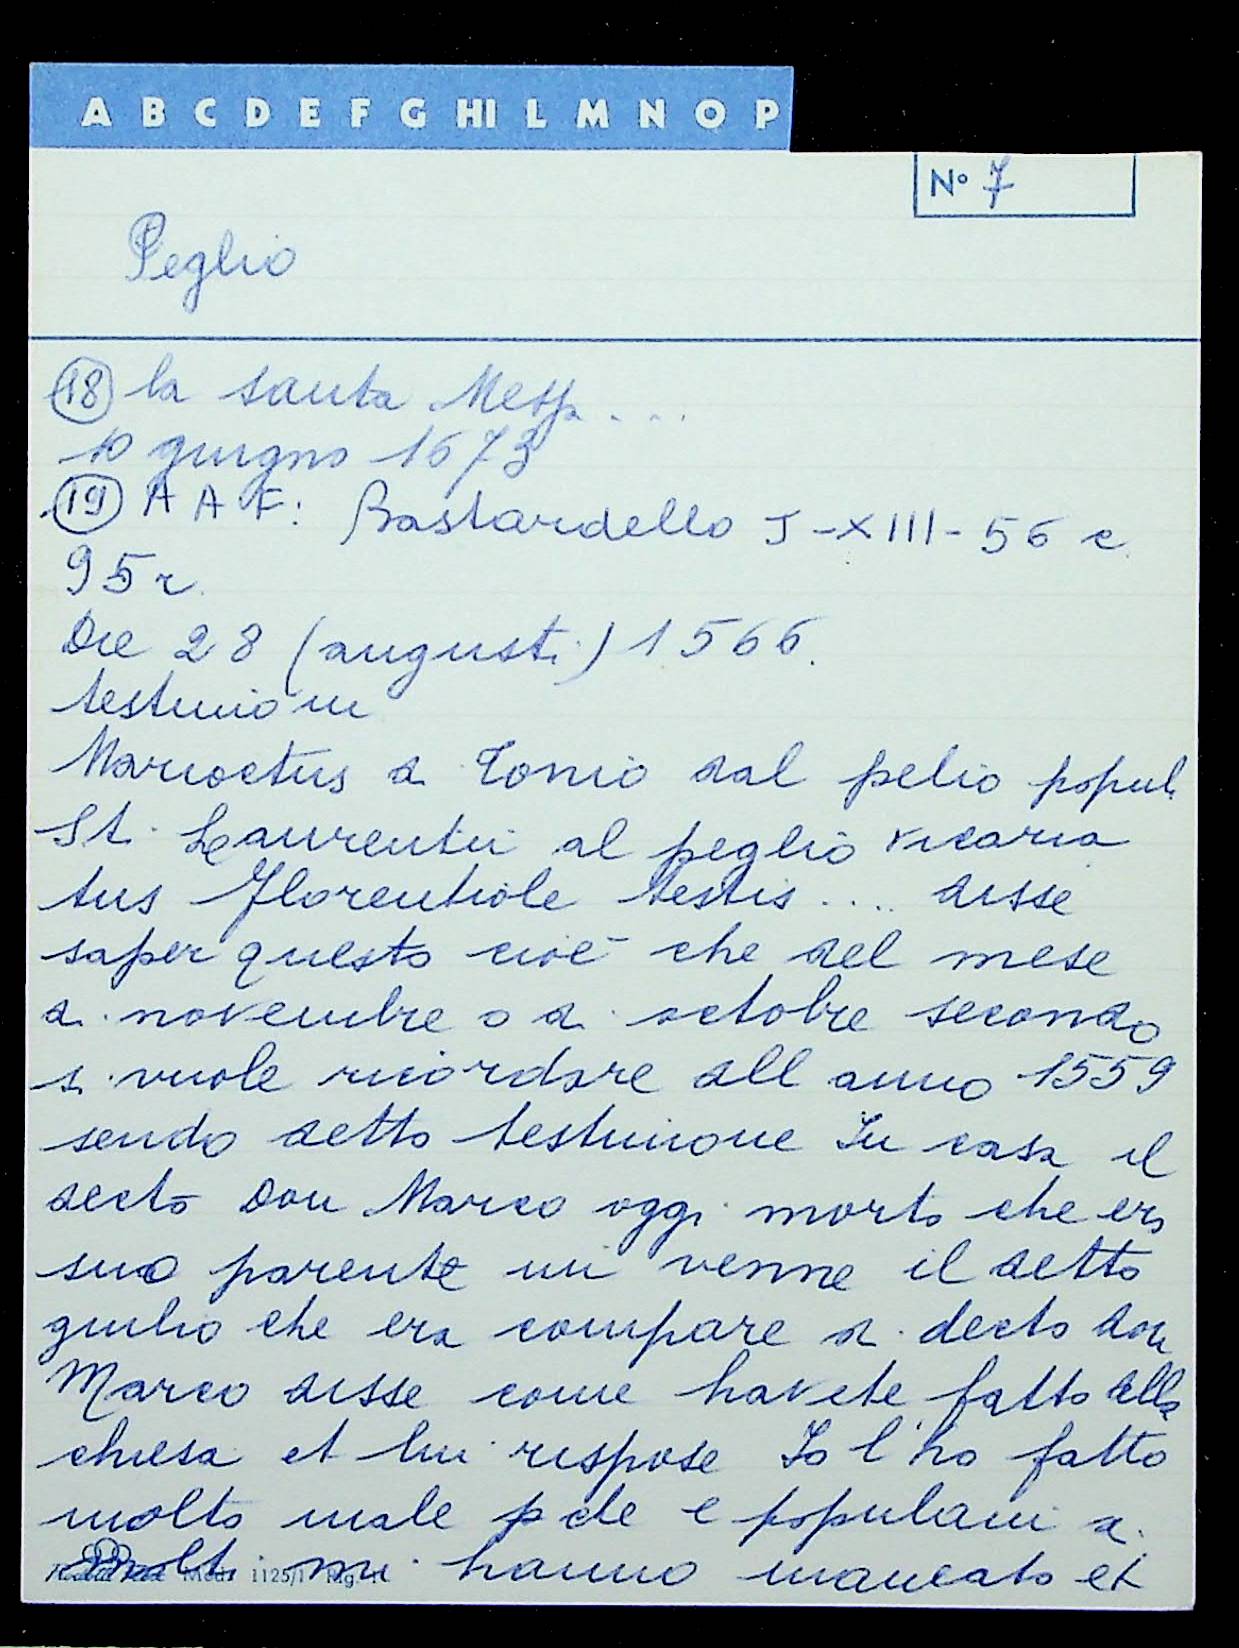 A B C D E F G HI L M N O P
N° 7
Peglio
18 la santa Messa ....
10 giugno 1673
19 A A F: Bastardello J-XIII-56 c.
95 r.
Die 28 (augusti) 1566.
testimoni
Marioctus di Tonio dal pelio popul.
St. Laurentii al peglio vicaria
tus Florentiole testis .... disse
saper questo cioè che del mese
di novembre o di octobre secondo
si vuole ricordare dell anno 1559
sendo detto testimone In casa il
decto Don Marco oggi morto che era
suo parente vi venne il detto
giulio che era compare di decto don
Marco disse come havete fatto della
chiesa et lui rispose Io l'ho fatto
molto male p che e populani di
molti mi hanno mancato et
Mod. 1125/1